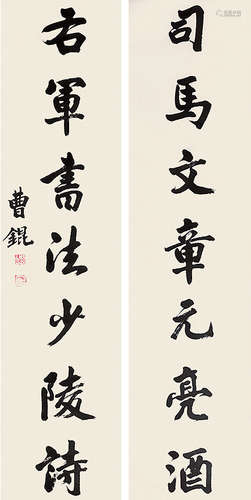 司馬文章元亮酒
右軍書法少陵詩
曹錕